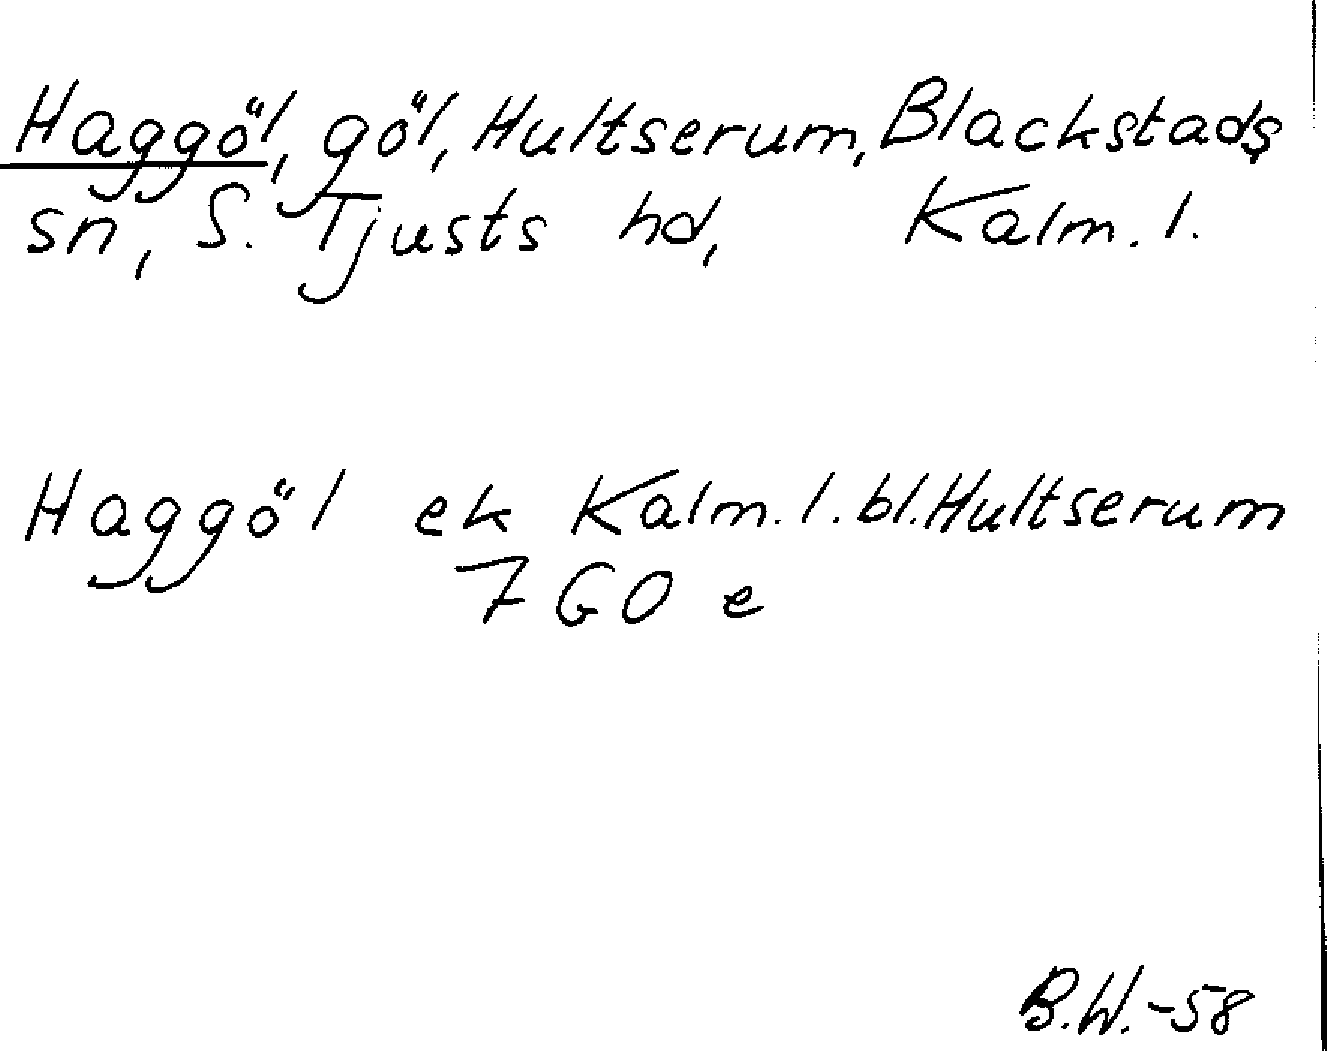 Haggöl, göl, Hultserum, Blackstads
sn, S. Tjusts hd, Kalm. l.
Haggöl ek Kalm. l. bl. Hultserum
7 GO e
B.W.-58